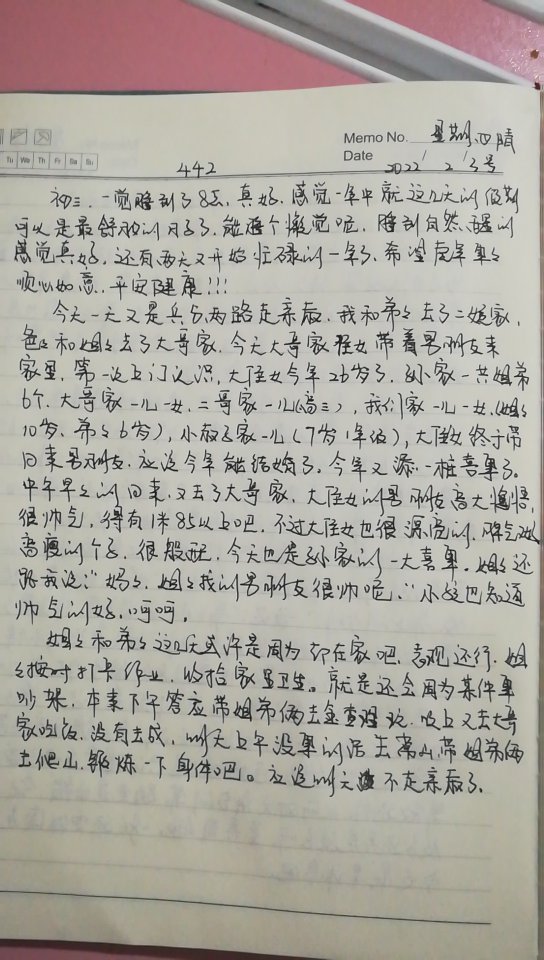 Tu We Th Fr Sa Su
Memo No. 星期四晴
Date 2022/2/3号
442
初三,一觉睡到了8点,真好,感觉一年中就这几天的假期
可以是最舒服的日子了,能睡个懒觉呢,睡到自然醒的
感觉真好,还有两天又开始忙碌的一年了,希望虎年事々
顺心如意,平安健康!!!
今天一天又是兵分两路走亲戚,我和弟々去了二姨家,
爸々和姐々去了大哥家,今天大哥家侄女带着男朋友来
家里,第一次上门认识,大侄女今年26岁了,孙家一共姐弟
6个,大哥家一儿一女,二哥家一儿(高三),我们家一儿一女(姐姐
10岁,弟々6岁),小叔子家一儿(7岁1年级),大侄女终于带
回来男朋友,应该今年能结婚了,今年又添一桩喜事了。
中午早々的回来,又去了大哥家,大侄女的男朋友高大
很帅气,得有1米85以上吧,不过大侄女也很漂亮的,
高瘦的个子,很般配,今天也是孙家的一大喜事,姐々还
跟我说:“妈々,姐々找的男朋友很帅呢,”小丫也知道
帅气的好,呵呵。
姐々和弟々这几天或许是因为都在家吧,表现还行,姐
々按时打卡作业,收拾家里卫生。就是还会因为某件事
吵架,本来下午答应带姐弟俩去金查理玩,晚上又去大哥
家吃饭,没有去成,明天上午没事的话去常山,带姐弟俩
去爬山,锻炼一下身体吧。应该明天不走亲戚了。